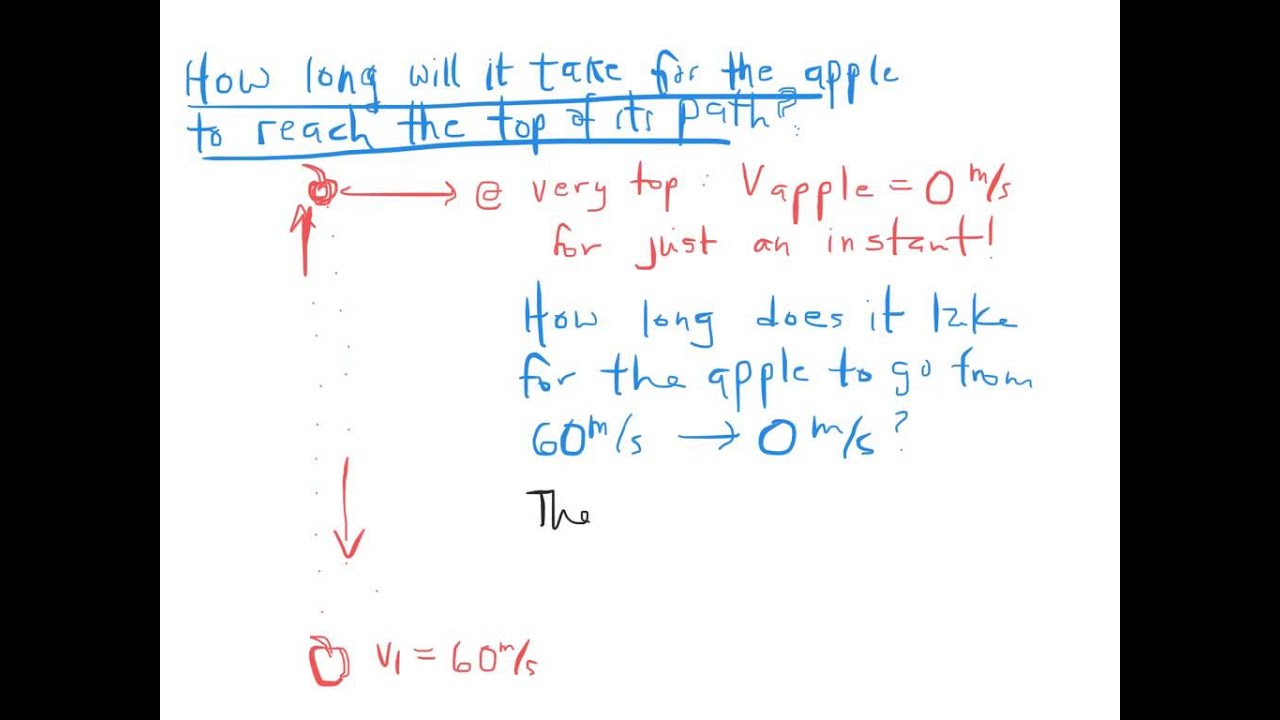 How long will it take for the apple
to reach the top of its path?
@ very top: Vapple = 0 m/s
for just an instant!
How long does it take
for the apple to go from
60 m/s → 0 m/s?
The
V1 = 60 m/s